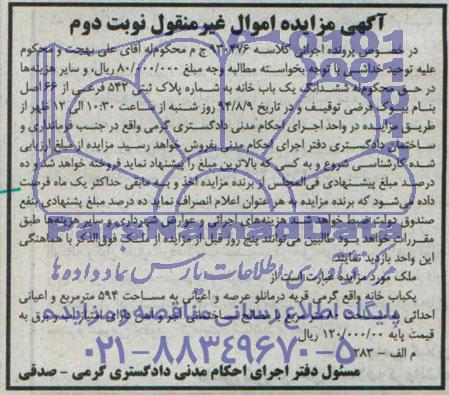 آگهی مزایده اموال غیرمنقول نوبت دوم
در خصوص پرونده اجرائی کلاسه ۹۳۰۴۷۶ ج م محکوم‌له آقای علی بهجت و محکوم
علیه توحید خداشی با توجه بخواسته مطالبه وجه مبلغ ۸۰/۰۰۰/۰۰۰ ریال، و سایر هزینه‌ها
در حق محکوم‌له ششدانگ یک باب خانه به شماره پلاک ثبتی ۵۴۲ فرعی از ۶۶ اصل
بنام بیوک فرضی توقیف و در تاریخ ۹۴/۸/۹ روز شنبه از ساعت ۱۰:۳۰ الی ۱۲ ظهر از
طریق مزایده در واحد اجرای احکام مدنی دادگستری گرمی واقع در جنب فرمانداری و
ساختمان دادگستری دفتر اجرای احکام مدنی بفروش خواهد رسید. مزایده از مبلغ ارزیابی
شده کارشناسی شروع و به کسی که بالاترین مبلغ را پیشنهاد نماید فروخته خواهد شد و ده
درصد مبلغ پیشنهادی فی‌المجلس از برنده مزایده اخذ و به مابقی حداکثر یک ماه فرصت
داده می‌شود که برنده مزایده به هر عنوان اعلام انصراف نماید ده درصد مبلغ پیشنهادی بنفع
صندوق دولت ضبط خواهد شد هزینه‌های اجرائی و عوارض شهرداری و سایر هزینه‌ها طبق
مقررات خواهد بود طالبین می‌توانند پنج روز قبل از مزایده از ملک فوق‌الذکر با هماهنگی
این واحد بازدید نمائید
ملک مورد مزایده عبارت است از
یکباب خانه واقع گرمی قریه درمانلو عرصه و اعیانی به مساحت ۵۹۴ مترمربع و اعیانی
احداثی به مساحت مترمربع با مصالح ساختمانی آجر و آهن دارای امتیاز آب و برق به
قیمت پایه ۱۲۰/۰۰۰/۰۰ ریال
م الف - ۲۸۳
مسئول دفتر اجرای احکام مدنی دادگستری گرمی - صدقی
ParsNamadData
مرکز فرآوری اطلاعات پارس نماد داده ها
پایگاه اطلاع رسانی مناقصه و مزایده
۰۲۱-۸۸۳۴۹۶۷۰-۵